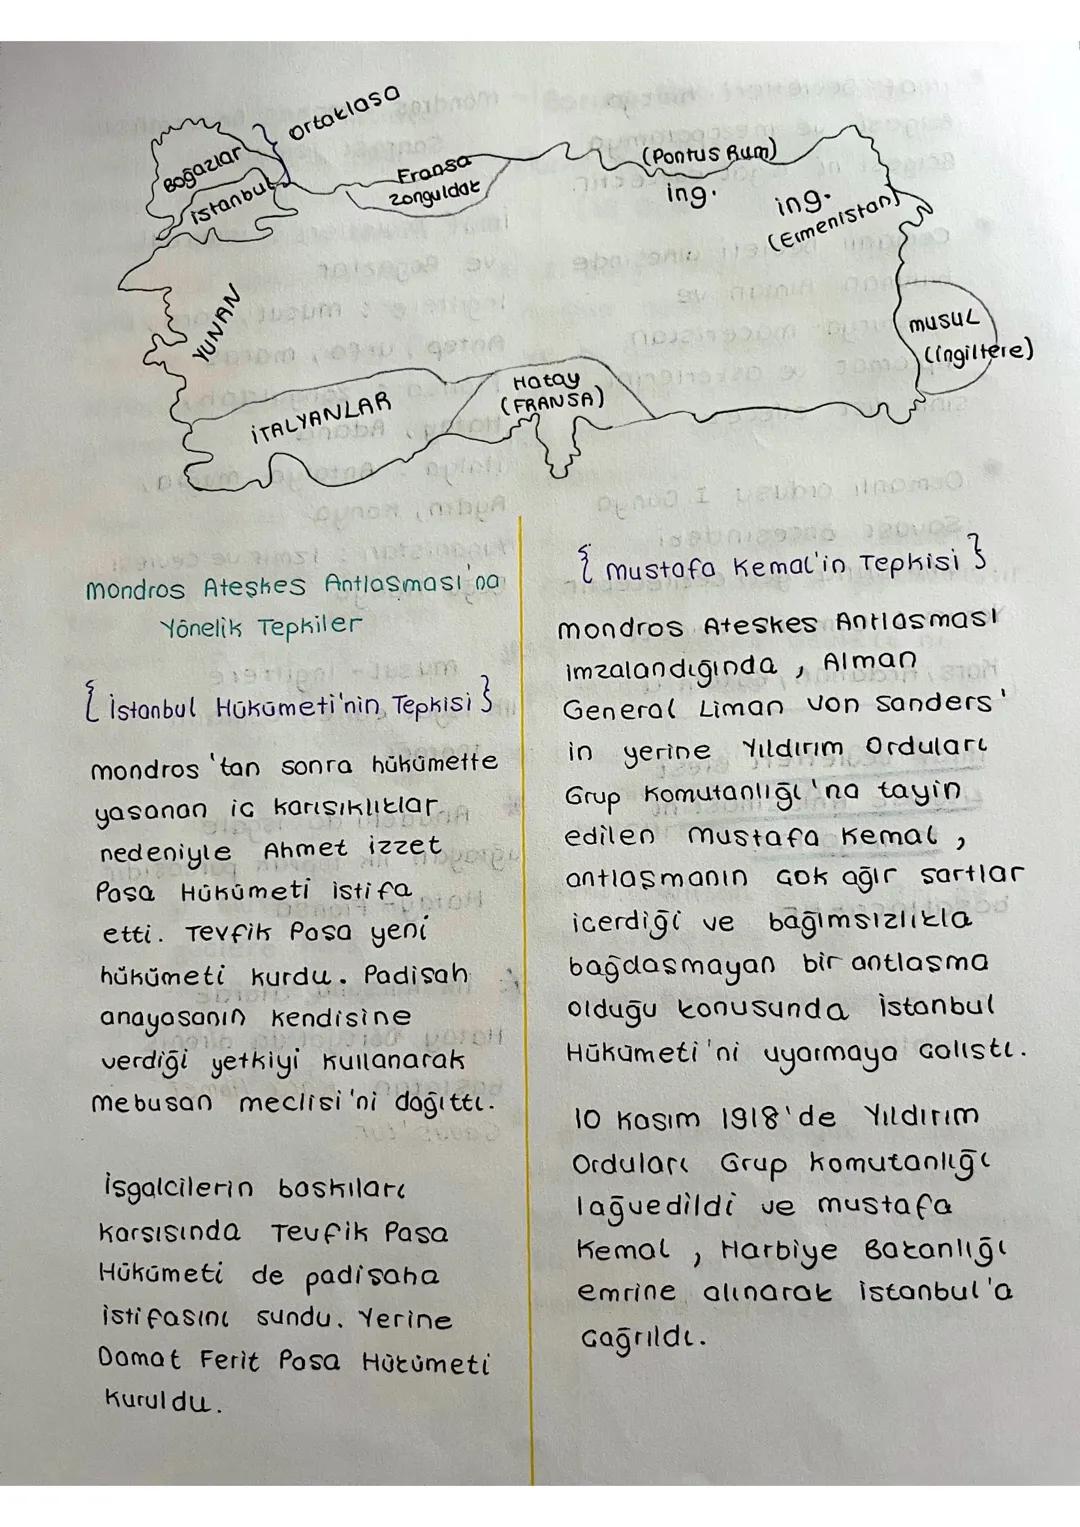 ortaklasa
Boğazlar
istanbul
Fransa
zonguldak
(Pontus Rum)
ing.
ing.
(Ermenistan)
YUNAN
musul
(ingiltere)
Hatay
(FRANSA)
iTALYANLAR
mondros Ateşkes Antlaşması'na
Yönelik Tepkiler
{ istanbul Hükümeti'nin Tepkisi }
mondros'tan sonra hükümette
yasanan ic karısıklıklar
nedeniyle Ahmet izzet
Pasa Hükümeti istifa
etti. Tevfik Pasa yeni
hükümeti kurdu. Padisah
anayasanın kendisine
verdiği yetkiyi kullanarak
mebusan meclisi'ni dağıttı.
işgalcilerin baskıları
karsısında Tevfik Pasa
Hükümeti de padisaha
istifasını sundu. Yerine
Damat Ferit Pasa Hükümeti
kuruldu.
{ mustafa kemal'in Tepkisi }
mondros Ateskes Antlasması
imzalandığında , Alman
General Liman von Sanders'
in yerine Yıldırım Orduları
Grup komutanlığı'na tayin
edilen mustafa kemal ,
antlaşmanın cok ağır sartlar
icerdiği ve bağımsızlıkla
bağdasmayan bir antlasma
olduğu konusunda istanbul
Hükümeti'ni uyarmaya calıstı.
10 kasım 1918'de Yıldırım
Orduları Grup komutanlığı
lağvedildi ve mustafa
kemal , Harbiye Bakanlığı
emrine alınarak istanbul'a
cağrıldı.